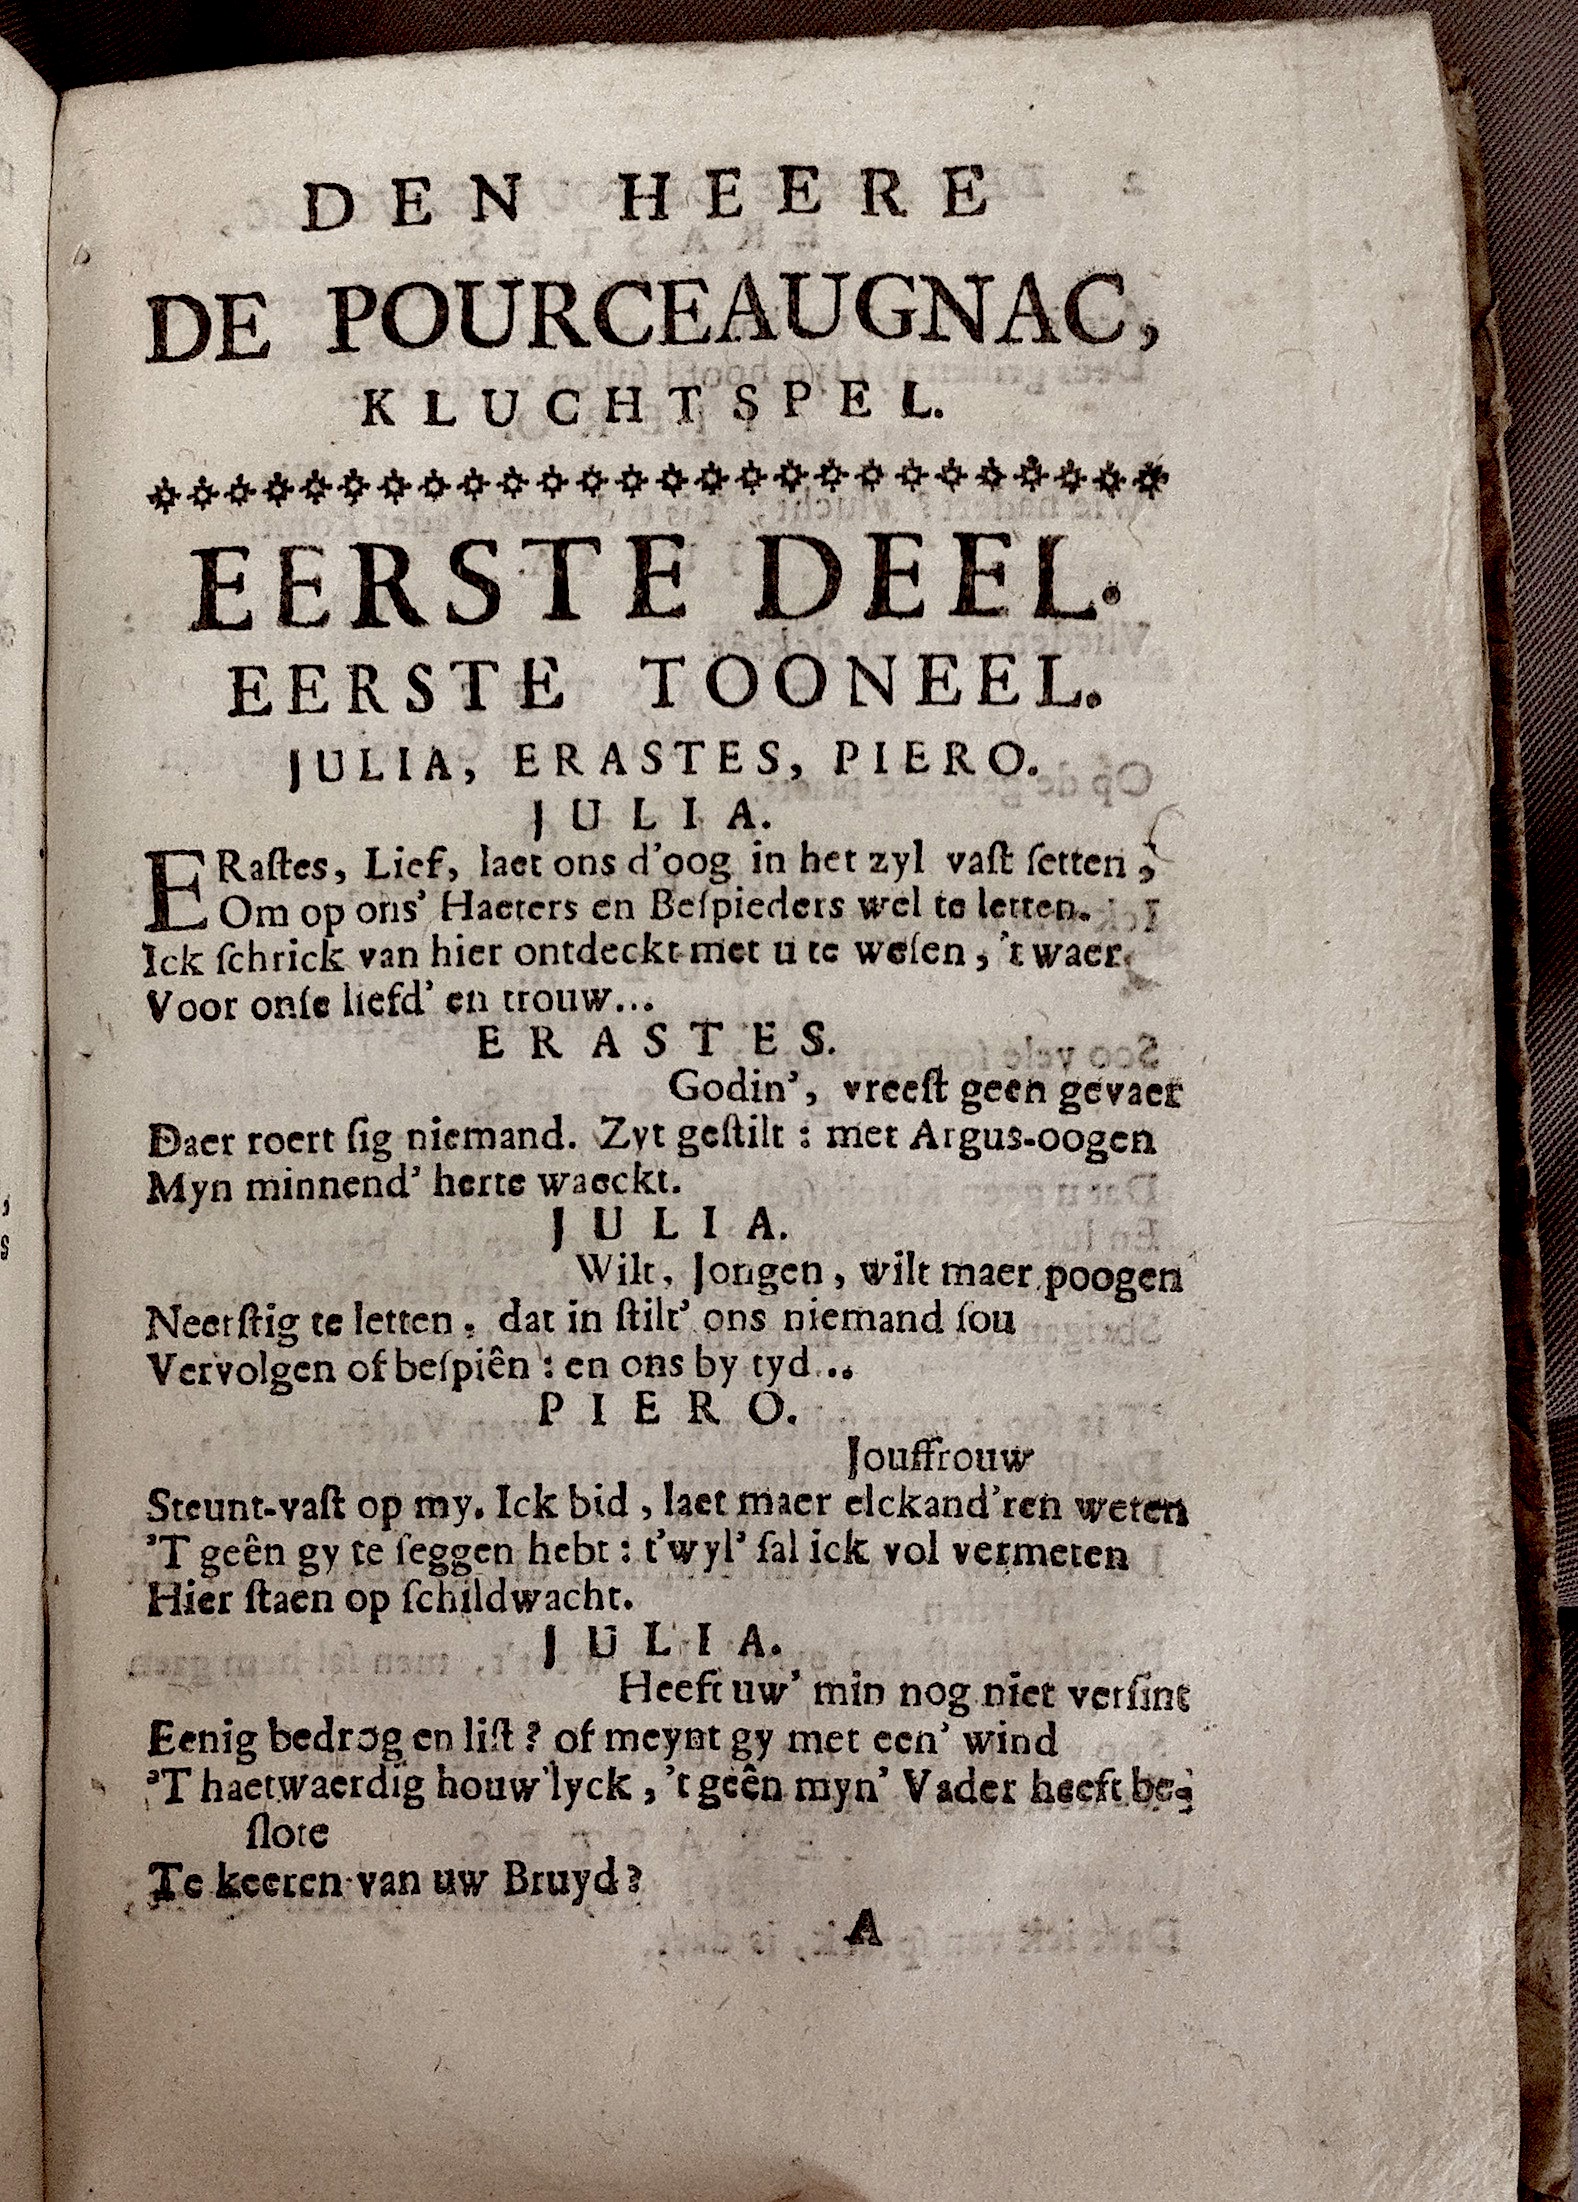 DEN HEERE
DE POURCEAUGNAC,
KLUCHTSPEL.
EERSTE DEEL.
EERSTE TOONEEL.
JULIA, ERASTES, PIERO.
JULIA.
ERaſtes, Lief, laet ons d'oog in het zyl vaſt ſetten,
Om op ons' Haeters en Beſpieders wel te letten.
Ick ſchrick van hier ontdeckt met u te weſen, 't waer
Voor onſe liefd' en trouw...
ERASTES.
Godin', vreeſt geen gevaer
Daer roert ſig niemand. Zyt geſtilt: met Argus-oogen
Myn minnend' herte waeckt.
JULIA.
Wilt, Jongen, wilt maer poogen
Neerſtig te letten, dat in ſtilt' ons niemand ſou
Vervolgen of beſpiên: en ons by tyd...
PIERO.
Jouffrouw
Steunt-vaſt op my. Ick bid, laet maer elckand'ren weten
'T geên gy te ſeggen hebt: t'wyl' ſal ick vol vermeten
Hier ſtaen op ſchildwacht.
JULIA.
Heeft uw' min nog niet verſint
Eenig bedrog en liſt? of meynt gy met een' wind
'T haetwaerdig houw'lyck, 't geên myn' Vader heeft be-
ſlote
Te keeren van uw Bruyd?
A